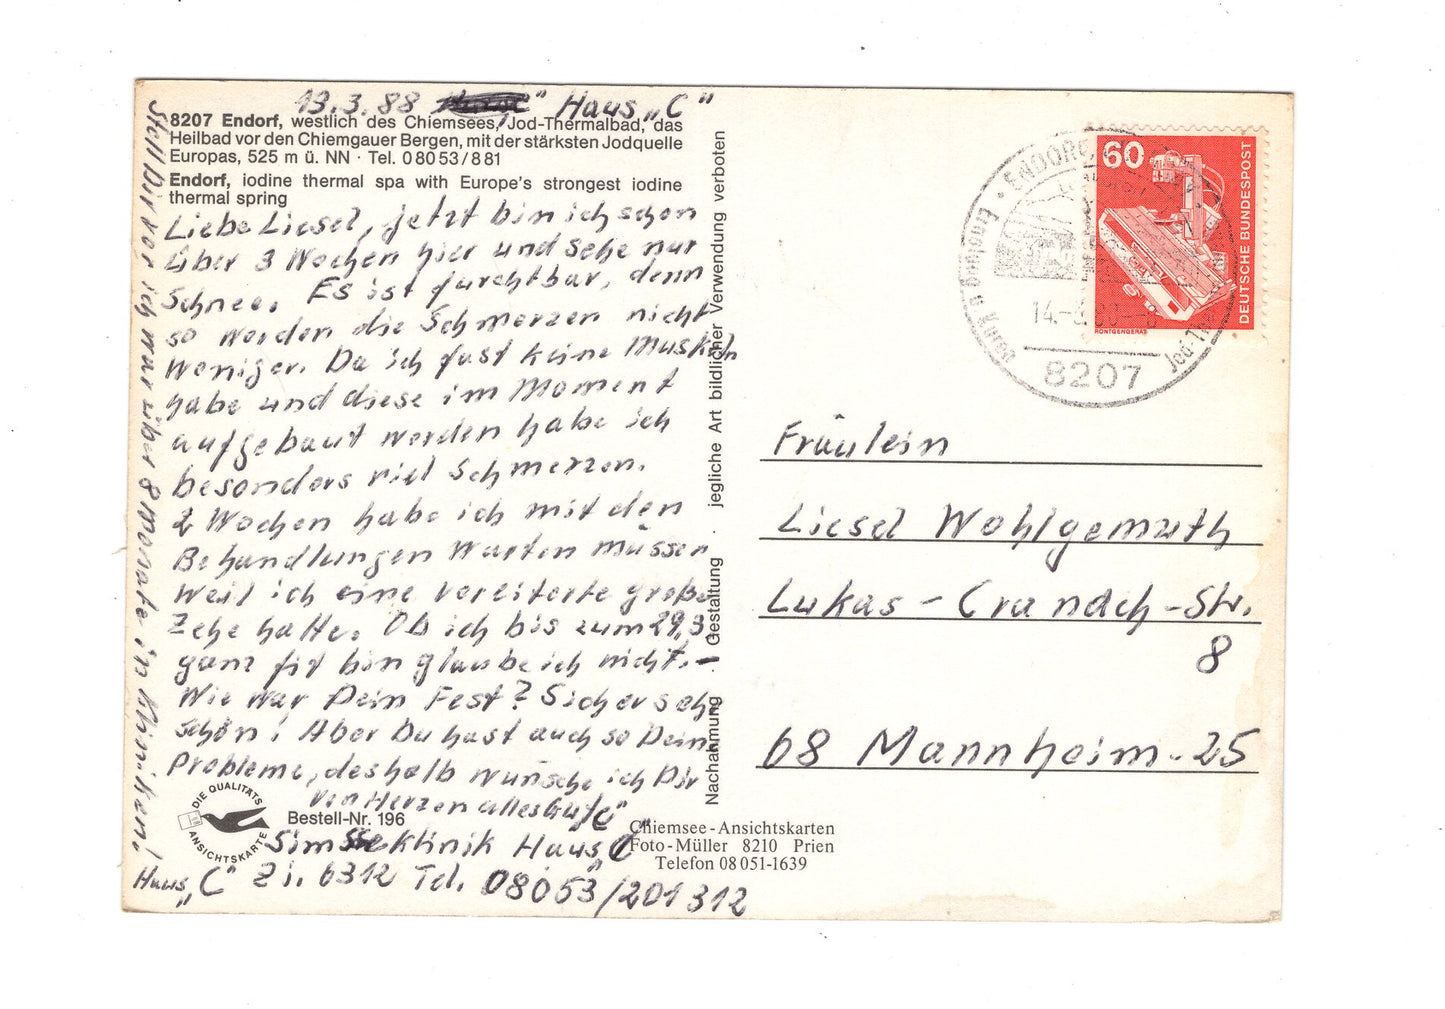 13.3.88 Haus „C"
8207 Endorf, westlich des Chiemsees, Jod-Thermalbad, das
Heilbad vor den Chiemgauer Bergen, mit der stärksten Jodquelle
Europas, 525 m ü. NN · Tel. 08053/881
Endorf, iodine thermal spa with Europe's strongest iodine
thermal spring
Liebe Liesel, jetzt bin ich schon
über 3 Wochen hier und sehe nur
Schnee. Es ist furchtbar, denn
so werden die Schmerzen nicht
weniger. Da ich fast keine Muskeln
habe und diese im Moment
aufgebaut werden habe ich
besonders viel Schmerzen.
2 Wochen habe ich mit den
Behandlungen warten müssen
weil ich eine vereiterte große
Zehe hatte. Ob ich bis zum 29.3.
ganz fit bin glaube ich nicht. –
Wie war Dein Fest? Sicher sehr
schön! Aber Du hast auch so Dein
Probleme, deshalb wünsche ich Dir
von Herzen alles Gute
Simsseeklinik Haus „C"
Haus „C" Zi. 6312 Tel. 08053/201312
Stell Dir vor ich war über 8 Monate in Kliniken!
DIE QUALITÄTS
ANSICHTSKARTE
Bestell-Nr. 196
Chiemsee-Ansichtskarten
Foto-Müller 8210 Prien
Telefon 08051-1639
Nachahmung · Gestaltung · jegliche Art bildlicher Verwendung verboten
60
DEUTSCHE BUNDESPOST
RÖNTGENGERÄT
ENDORF
Erholung u Kuren
8207
Fräulein
Liesel Wohlgemuth
Lukas-Cranach-Str.
8
68 Mannheim-25